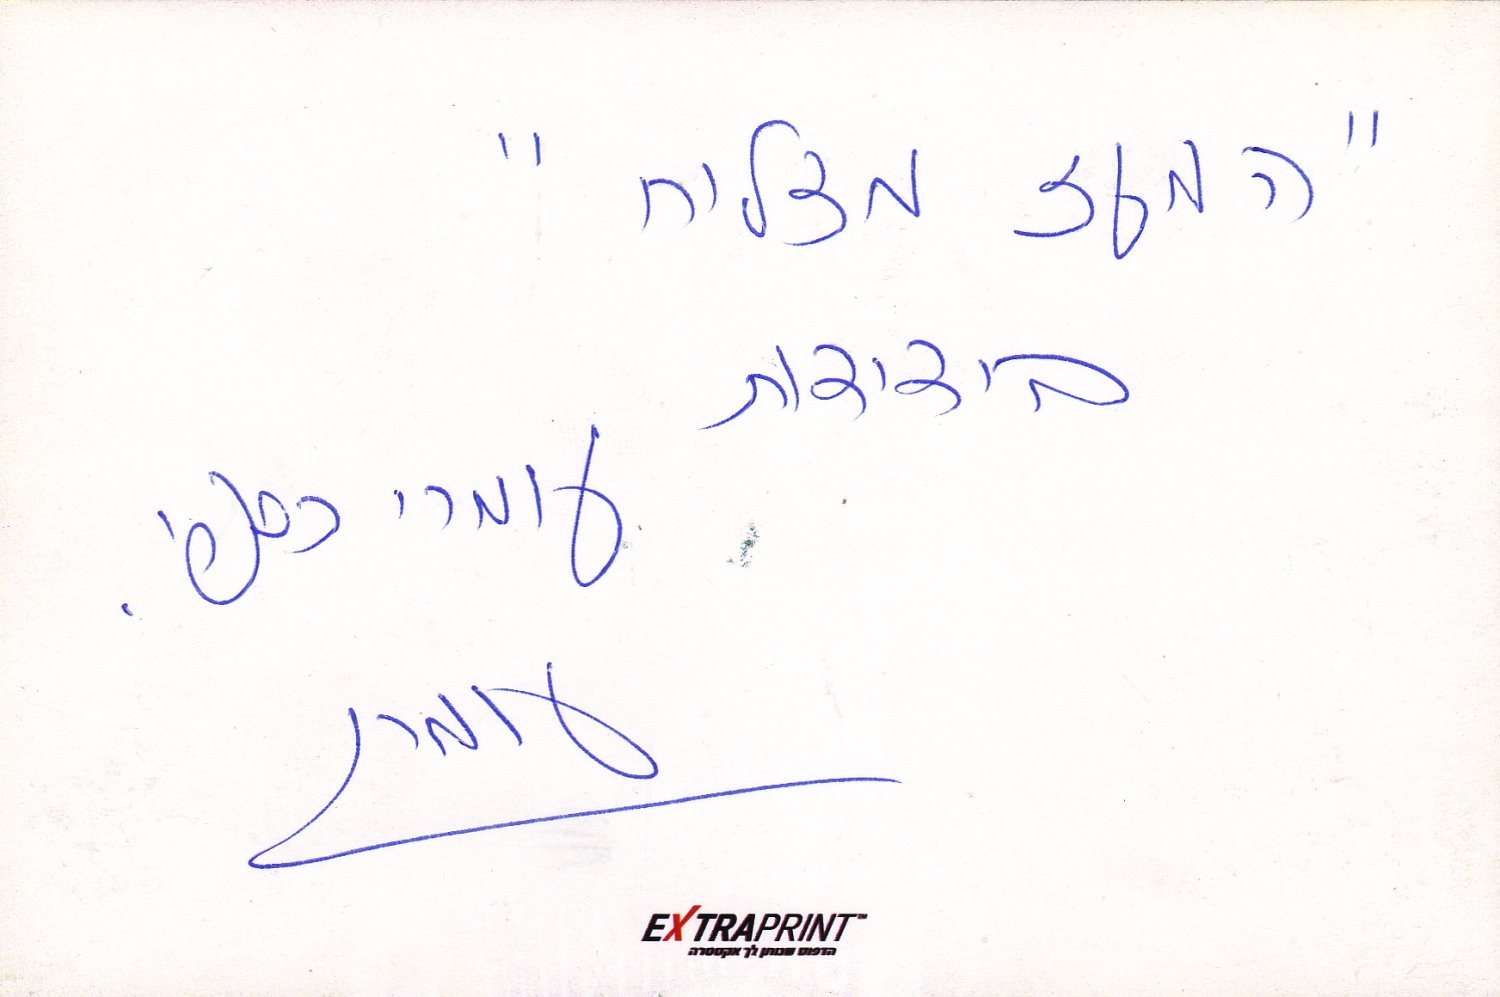 "המעז מצליח"
בידידות
עומרי כספי.
עומרי
EXTRAPRINT™
הדפוס שנותן לך אקסטרה